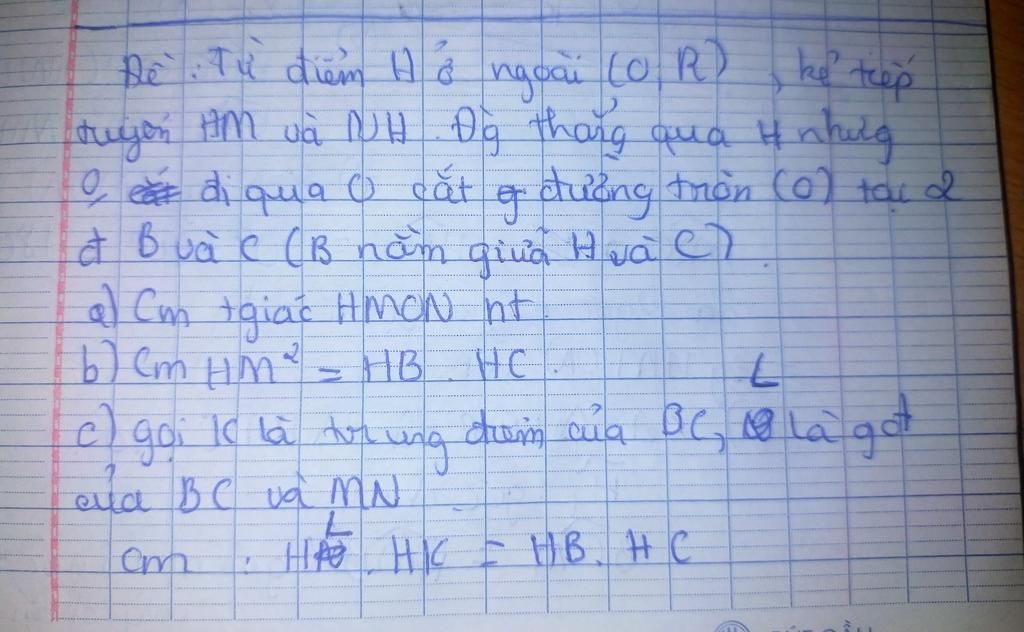 Đề: Từ điểm H ở ngoài (O,R), kẻ tiếp
tuyến HM và NH. Đg thẳng qua H nhưng
0 đi qua O cắt đường tròn (O) tại 2
đ B và C (B nằm giữa H và C).
a) Cm tgiác HMON nt.
b) Cm HM² = HB. HC.
c) gọi K là trung điểm của BC, L là gđ
của BC và MN
Cm : HL. HK = HB. HC